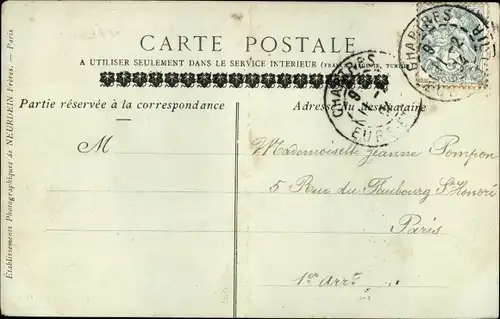 CARTE POSTALE
A UTILISER SEULEMENT DANS LE SERVICE INTERIEUR
Partie réservée à la correspondance
Adresse du destinataire
M
Mademoiselle Jeanne Pompon
5 Rue du Faubourg St Honoré
Paris
1er Arrt
CHARTRES
CHARTRES
Établissements Photographiques de NEURDEIN Frères. — Paris